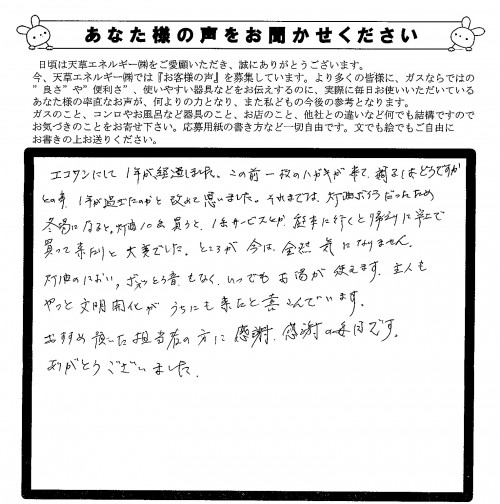 あなた様の声をお聞かせください
日頃は天草エネルギー㈱をご愛顧いただき、誠にありがとうございます。
今、天草エネルギー㈱では『お客様の声』を募集しています。より多くの皆様に、ガスならではの
”良さ”や”便利さ”、使いやすい器具などをお伝えするのに、実際に毎日お使いいただいている
あなた様の率直なお声が、何よりの力となり、また私どもの今後の参考となります。
ガスのこと、コンロやお風呂など器具のこと、お店のこと、他社との違いなど何でも結構ですので
お気づきのことをお寄せ下さい。応募用紙の書き方など一切自由です。文でも絵でもご自由に
お書きの上お送りください。
エコワンにして1年が経過しました。この前一枚のハガキが来て、調子はどうですか
との事、1年が過ぎたのかと改めて思いました。それまでは、灯油ボイラーだったため
冬場になると、灯油10缶買うと、1缶サービスとか、熊本に行くと帰りに
買って来たりと大変でした。ところが今は、全然気になりません。
灯油のにおい、ボッという音もなく、いつでもお湯が使えます。主人も
やっと文明開化がうちにも来たと喜こんでいます。
おすすめ頂いた担当者の方に感謝、感謝の毎日です。
ありがとうございました。